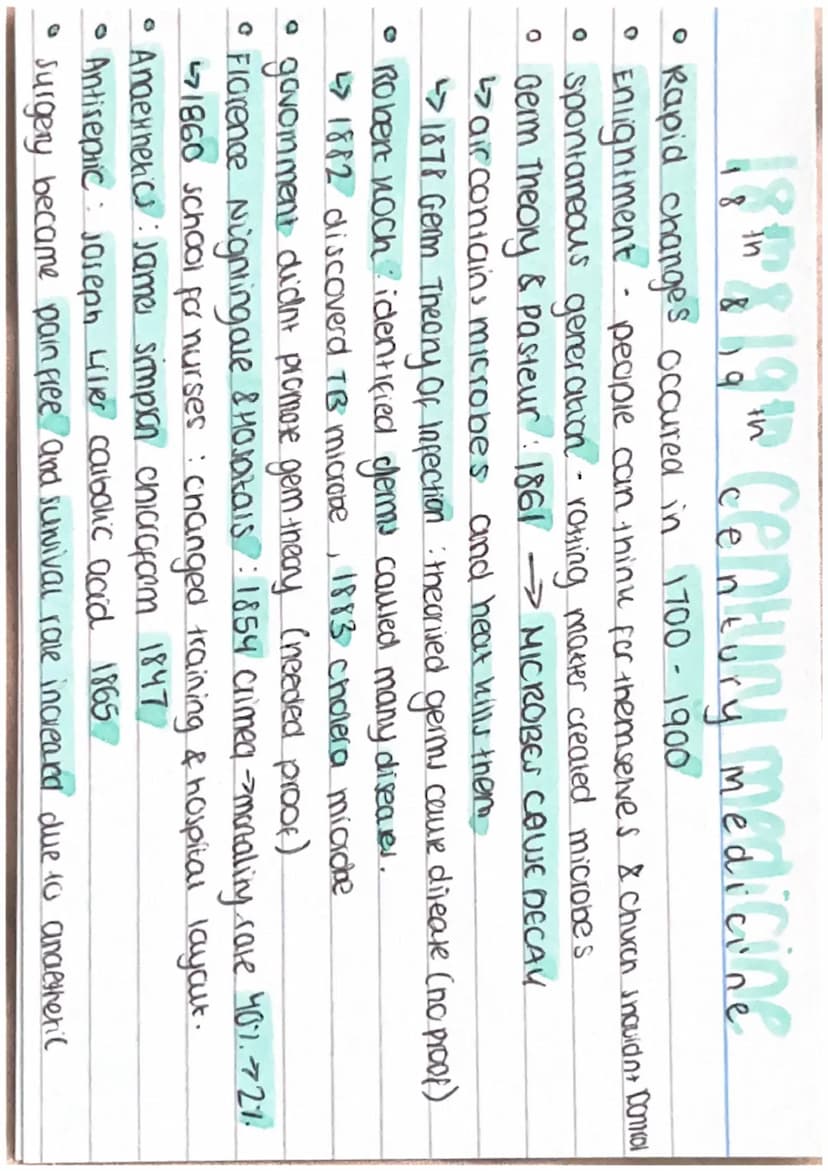 18th & 19th century medicine
18th & 19th century medicine
• Rapid changes occured in 1700 - 1900
• Enlightment - people can think for themselves & church shouldnt control
• spontaneous generation - rotting matter created microbes
• Germ Theory & Pasteur : 1861 → MICROBES CAUSE DECAY
↳ air contains microbes and heat kills them
↳ 1878 Germ Theory Of Infection : theorised germs cause disease (no proof)
• Robert Koch : identified germs caused many diseases.
↳ 1882 discoverd TB microbe , 1883 cholera microbe
• government didnt promote germ theory (needed proof)
• Florence Nightingale & Hospitals : 1854 crimea → mortality rate 40% → 2%.
↳ 1860 school for nurses : changed training & hospital layout.
• Anaethetics : James Simpson chloroform 1847
• Antiseptic : Joseph Lister carbolic acid 1865
• surgery became pain free and survival rate increased due to anaesthetic